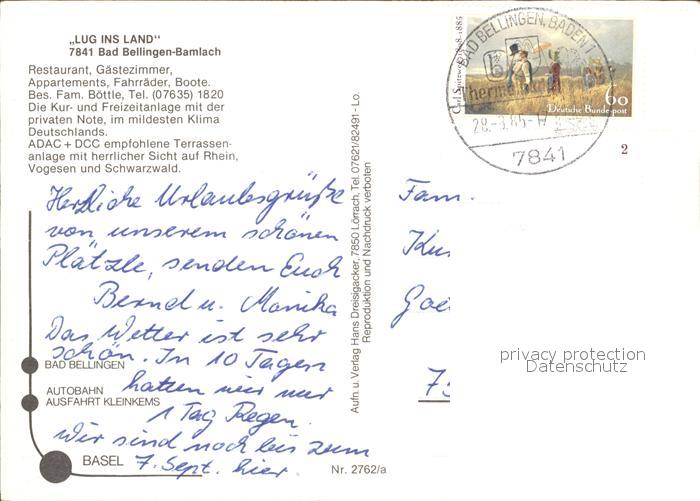 „LUG INS LAND“
7841 Bad Bellingen-Bamlach
Restaurant, Gästezimmer,
Appartements, Fahrräder, Boote.
Bes. Fam. Böttle, Tel. (07635) 1820
Die Kur- und Freizeitanlage mit der
privaten Note, im mildesten Klima
Deutschlands.
ADAC + DCC empfohlene Terrassen-
anlage mit herrlicher Sicht auf Rhein,
Vogesen und Schwarzwald.
Herzliche Urlaubsgrüße
von unserem schönen
Plätzle, senden Euch
Bernd u. Monika
Das Wetter ist sehr
schön. In 10 Tagen
hatten wir nur
1 Tag Regen.
Wir sind noch bis zum
7. Sept. hier.
BAD BELLINGEN
AUTOBAHN
AUSFAHRT KLEINKEMS
BASEL
Nr. 2762/a
Aufn. u. Verlag Hans Dreisigacker, 7850 Lörrach. Tel. 07621/82491 - Lo.
Reproduktion und Nachdruck verboten
BAD BELLINGEN, BADEN 1
7841
Carl Spitzweg 1808-1885
60
Deutsche Bundespost
2
Fam.
privacy protection
Datenschutz